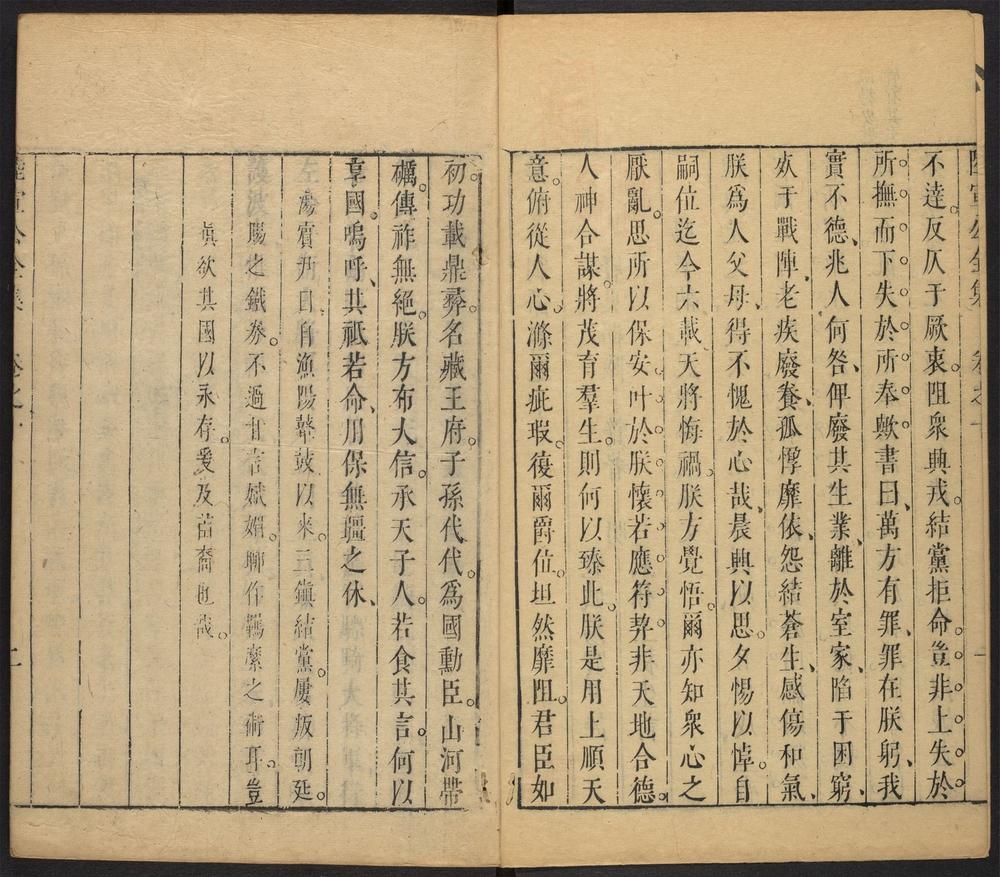 陸宣公全集 卷之一 一
不達反仄于厥衷阻衆興戎結黨拒命豈非上失於
所撫而下失於所奉歟書曰萬方有罪罪在朕躬我
實不德兆人何咎俾廢其生業離於室家陷于困窮
夾于戰陣老疾廢養孤惸靡依怨結蒼生感傷和氣
朕爲人父母得不愧於心哉晨興以思夕惕以悼自
嗣位迄今六載天將悔禍朕方覺悟爾亦知衆心之
厭亂思所以保安叶於朕懷若應符契非天地合德
人神合謀將茂育羣生則何以臻此朕是用上順天
意俯從人心滌爾疵瑕復爾爵位坦然靡阻君臣如
初功載鼎彝名藏王府子孫代代爲國勳臣山河帶
礪傳祚無絕朕方布大信承天子人若食其言何以
享國嗚呼其祗若命用保無疆之休
湯賓尹曰自漁陽鼙鼓以來三鎭結黨屢叛朝延
賜之鐵券不過甘言媚聊作羈縻之術耳豈
眞欲其國以永存爰及苗裔也哉
陸宣公全集 卷之一 二